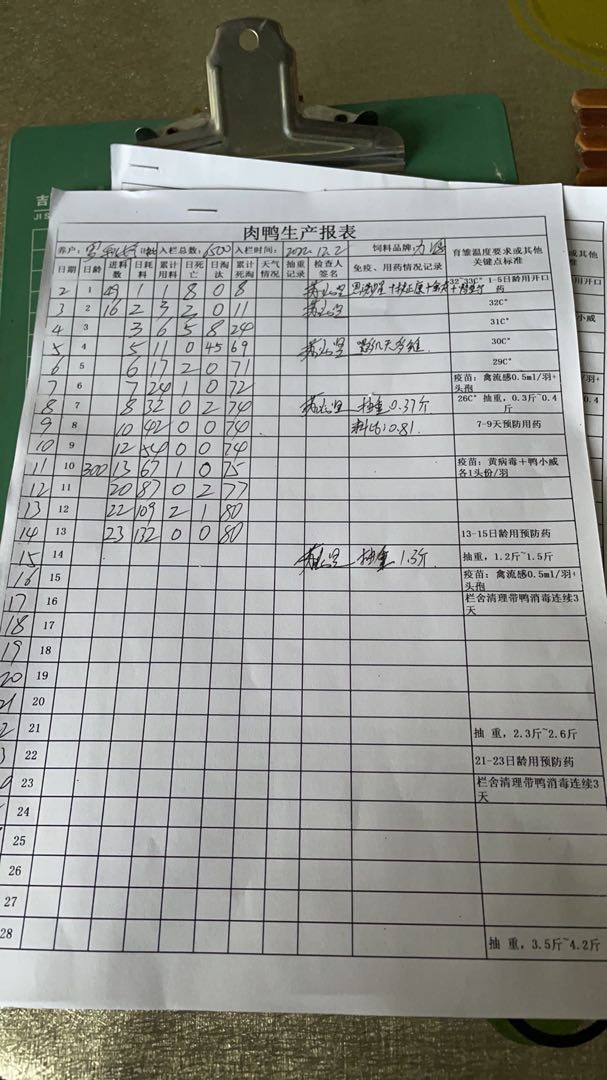 肉鸭生产报表
养户: 入栏总数: 6500 入栏时间: 2022.12.2 饲料品牌: 育雏温度要求或其他关键点标准
日期 日龄 进料数 日耗料 累计用料 日死亡 日淘汰 累计死淘 天气情况 抽重记录 检查人签名 免疫、用药情况记录
2 1 49 1 1 8 0 8 32-33C° 1-5日龄用开口药
3 2 16 2 3 2 0 11 32C°
4 3 3 6 5 8 24 31C°
5 4 5 11 0 45 69 30C°
6 5 6 17 2 0 71 29C°
7 6 7 24 1 0 72 疫苗: 禽流感0.5ml/羽+头孢
8 7 8 32 0 2 74 抽重0.37斤 26C° 抽重, 0.3斤~0.4斤
9 8 10 42 0 0 74 料比:0.81 7-9天预防用药
10 9 12 54 0 0 74
11 10 300 13 67 1 0 75 疫苗: 黄病毒+鸭小威各1头份/羽
12 11 20 87 0 2 77
13 12 22 109 2 1 80
14 13 23 132 0 0 80 13-15日龄用预防药
15 14 抽重 1.3斤. 抽重, 1.2斤~1.5斤
16 15 疫苗: 禽流感0.5ml/羽+头孢
17 16 栏舍清理带鸭消毒连续3天
18 17
19 18
20 19
21 20
2 21 抽 重, 2.3斤~2.6斤
3 22 21-23日龄用预防药
23 栏舍清理带鸭消毒连续3天
24
25
26
27
28 抽 重, 3.5斤~4.2斤